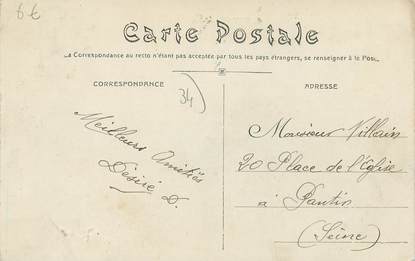 6€
Carte Postale
La Correspondance au recto n'étant pas acceptée par tous les pays étrangers, se renseigner à la Poste
CORRESPONDANCE
ADRESSE
34
Meilleurs Amitiés
Désiré D.
Monsieur Villain
20 Place de l'Église
à Pantin
(Seine)